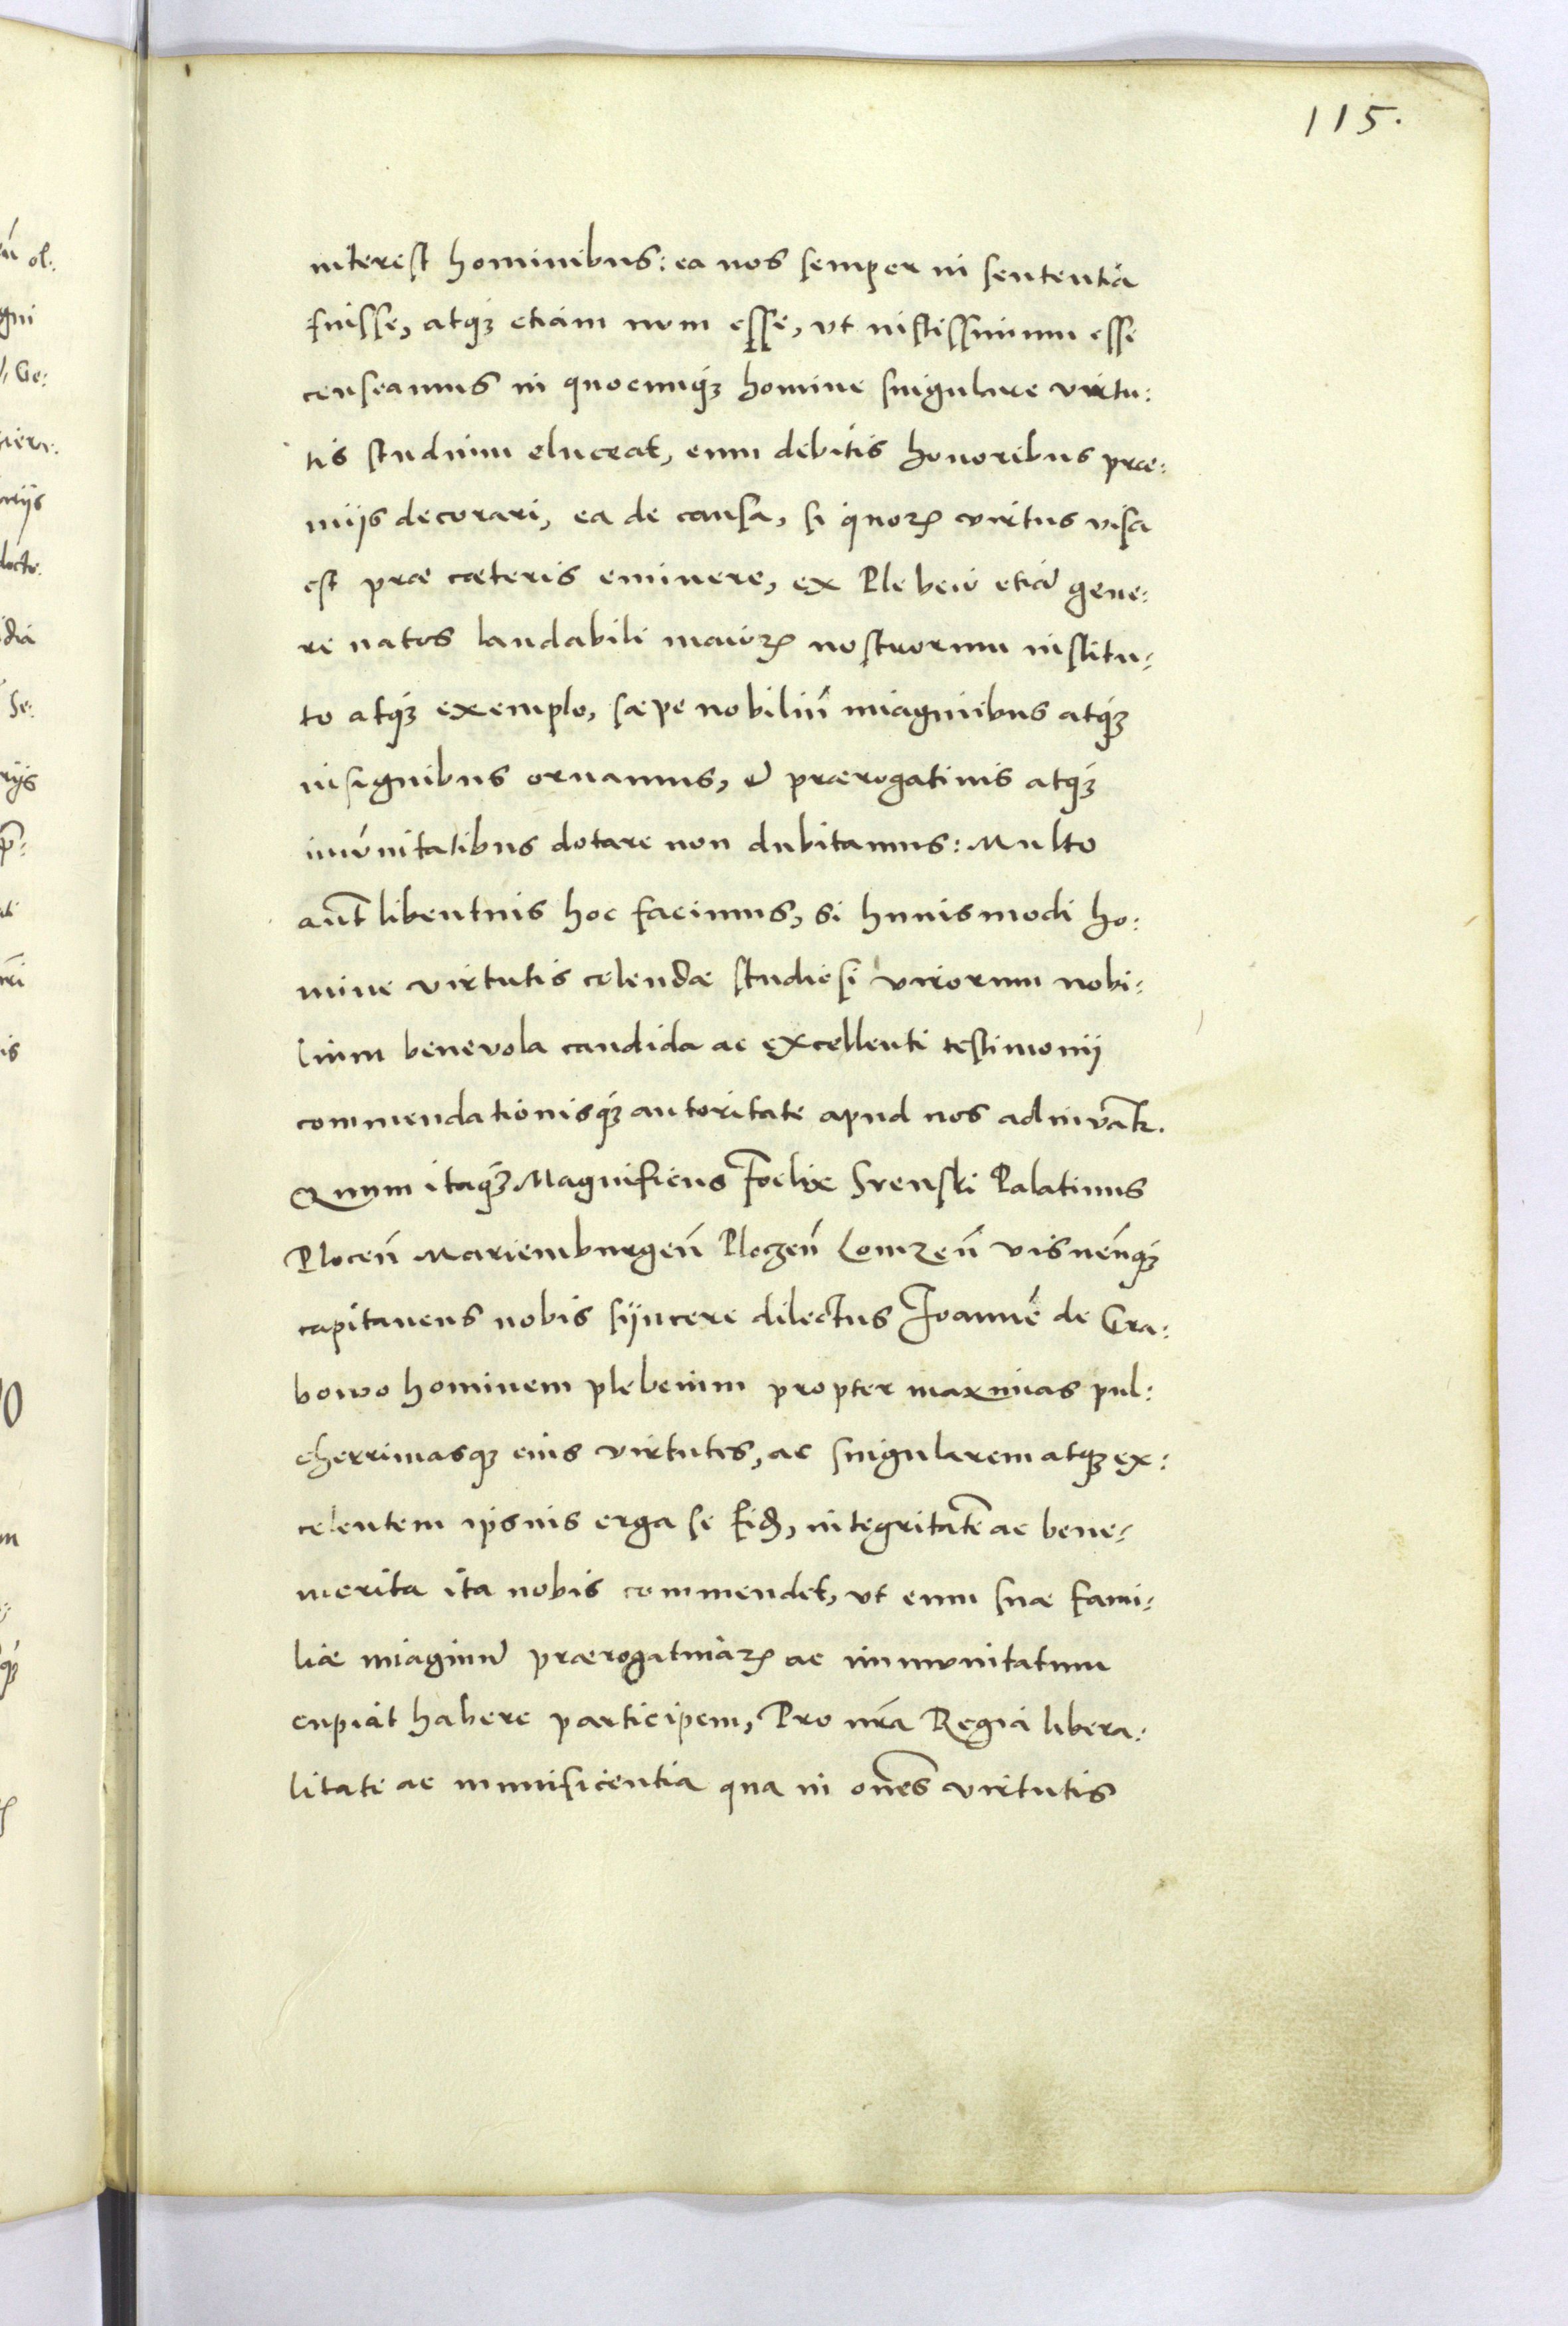 115.
interest hominibus: ea nos semper in sententia
fuisse, atqꝫ etiam num esse, ut iustissimum esse
censeamus in quocunqꝫ homine singulare virtu:
tis studium eluceat, eum debitis honoribus præ:
miis decorari, ea de causa, si quoꝝ virtus visa
est præ cæteris eminere, ex Plebeio etiã gene:
re natos laudabili maioꝝ nostrorum institu:
to atqꝫ exemplo, sæpe nobiliũ imaginibus atqꝫ
insignibus ornamus, & prærogativis atqꝫ
imũnitatibus dotare non dubitamus: Multo
aut̃ libentius hoc facimus, si huiusmodi ho:
mine virtutis colendæ studiosi virorum nobi:
lium benevola candida ac excellenti testimonii
commendationisqꝫ autoritate apud nos adiuvat̃.
Quum itaqꝫ Magnificus Fœlix Srenski Palatinus
Plocen̄ Mariemburgen̄ Ploczen̄ Lomzen̄ visnen̄qꝫ
capitaneus nobis sÿncere dilectus Joannẽ de Gra:
bowo hominem plebeium propter maximas pul:
cherrimasqꝫ eius virtutes, ac singularem atqꝫ ex:
celentem ipsius erga se fidẽ, integritatẽ ac bene:
merita ita nobis commendet, ut eum suæ fami:
liæ imaginũ prærogativaꝝ ac immunitatum
cupiat habere participem, Pro nr̃a Regia libera:
litate ac munificentia qua in om̃es virtutis